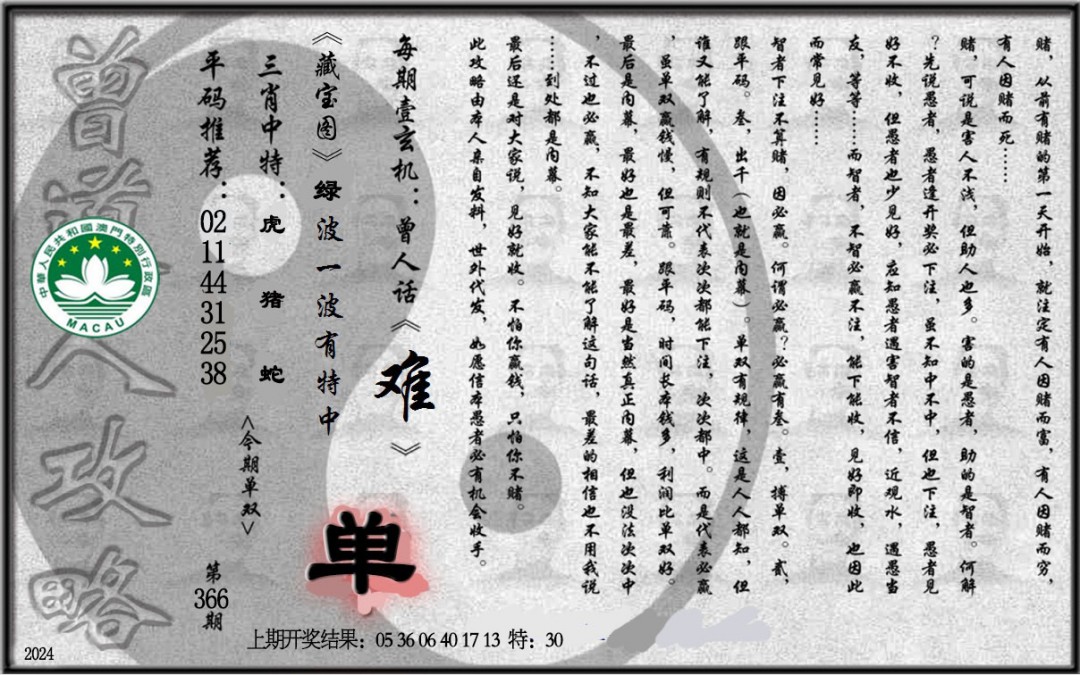 赌，从前有赌的第一天开始，就注定有人因赌而富，有人因赌而穷，
有人因赌而死……
赌，可说是害人不浅，但助人也多。害的是愚者，助的是智者。何解
？先说愚者，愚者逢开奖必下注，虽不知中不中，但也下注，愚者见
好不收，但愚者也少见好，应知愚者遇害智者不信，近观水，遇愚当
友，等等……而智者，不智必赢不注，能下能收，见好即收，也因此
而常见好……
智者下注不算赌，因必赢。何谓必赢？必赢有叁。壹，搏单双。贰，
跟平码。叁，出千（也就是内幕）。单双有规律，这是人人都知，但
谁又能了解，有规则不代表次次都能下注，次次都中。而是代表必赢
，虽单双赢钱慢，但可靠。跟平码，时间长本钱多，利润比单双好。
最后是内幕，最好也是最差，最好是当然真正内幕，但也没法次次中
，不过也必赢，不知大家能不能了解这句话，最差的相信也不用我说
……到处都是内幕。
最后还是对大家说，见好就收。不怕你赢钱，只怕你不赌。
此攻略由本人亲自发料，世外代发，如愿信本愚者必有机会收手。
每期壹玄机：曾人话《难》
《藏宝图》绿波一波有特中
单
三肖中特：虎 猪 蛇
<今期单双>
平码推荐：02 11 44 31 25 38
第366期
曾道人攻略
中華人民共和國澳門特別行政區
MACAU
上期开奖结果：05 36 06 40 17 13 特：30
2024